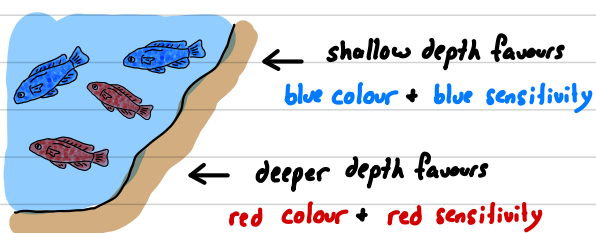 shallow depth favours
blue colour + blue sensitivity
deeper depth favours
red colour + red sensitivity